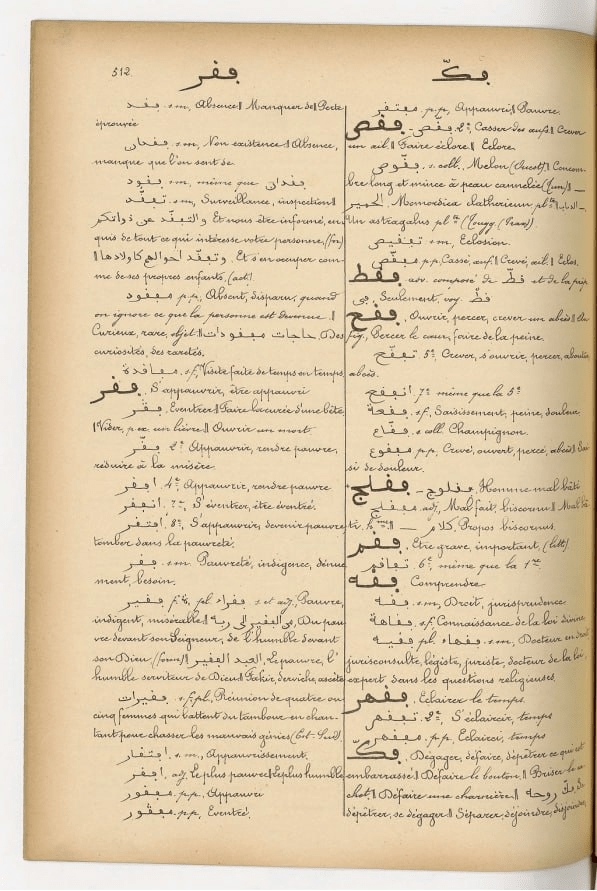 512
فقر
فكّ
فقد. s.m, Absence ‖ Manquer de ‖ Perte
éprouvée
فقدان. s.m, Non existence ‖ Absence,
manque que l'on sent de
فقود s.m, même que فقدان
تفقّد. s.m, Surveillance, inspection ‖
والتفقّد عن ذواتكم Et nous être informé, en-
quis de tout ce qui intéresse votre personne, (fm)
‖ وتفقد احوالهم كاولادها. Et s'en occuper com-
me de ses propres enfants, (act)
مفقود p.p, Absent, disparu, quand
on ignore ce que la personne est devenue ‖
Curieux, rare, objet ‖ حاجات مفقودات, Des
curiosités, des raretés.
مفاقدة. s.f, Visite faite de temps en temps
فقر. S'appauvrir, être appauvri
فقر. Eventrer ‖ Faire la curée d'une bête
‖ Vider, p. ex. un lièvre ‖ Ouvrir un mort
فقّر 2ᵉ Appauvrir, rendre pauvre,
réduire à la misère
افقر. 4ᵉ Appauvrir, rendre pauvre
انفقر. 7ᵉ, S'éventrer, être éventré.
افتقر. 8ᵉ, S'appauvrir, devenir pauvre,
tomber dans la pauvreté.
فقر. s.m, Pauvreté, indigence, dénue-
ment, besoin.
فقير f. ة, pl فقراء s. et adj, Pauvre,
indigent, misérable ‖ من الفقير الى ربه, Du pau-
vre devant son Seigneur, de l'humble devant
son Dieu (form) ‖ العبد الفقير, Le pauvre, l'
humble serviteur de Dieu ‖ Fakir, derviche, ascète
فقيرات. s.f.pl, Réunion de quatre ou
cinq femmes qui battent du tambour en chan-
tant pour chasser les mauvais génies (Est-Sud)
افتقار s.m, Appauvrissement.
افقر. adj, Le plus pauvre ‖ Le plus humble
مفقور. p.p, Appauvri
مفقور. p.p, Eventré.
مفتقر p.p, Appauvri ‖ Pauvre.
فقص - فقّص 2ᵉ, Casser des œufs ‖ Crever
un œil ‖ Faire éclore ‖ Eclore.
فقوص. s. coll, Melon (Ouest) ‖ Concom-
bre long et mince à peau cannelée (Tun) ‖ —
الحمير, Momordica elatherium plᵗᵉ ‖ —
Un astragalus plᵗᵉ (Tougg. (Prax)).
تفقيص s.m, Eclosion.
مفقّص p.p, Cassé, œuf ‖ Crevé, œil ‖ Eclos.
فقط adv. composé de قطّ et de la prép
فى Seulement, voy. قطّ
فقع. Ouvrir, percer, crever un abcès ‖ Au
fig, Percer le cœur, faire de la peine.
تفقّع 5ᵉ, Crever, s'ouvrir, percer, aboutir
abcès.
انفقع 7ᵉ même que la 5ᵉ
فقعة. s.f, Saisissement, peine, douleur
فقّاع. s. coll Champignon.
مفقوع p.p, Crevé, ouvert, percé, abcès ‖ Sai-
si de douleur.
فقلج - مفلوج, Homme mal bâti
مفقلج adj, Mal fait, biscornu ‖ Mal bâ-
ti, homme ‖ كلام —, Propos biscornus.
فقم. Etre grave, important, (litt)
تفاقم 6ᵉ, même que la 1ʳᵉ
فقه Comprendre
فقه s.m, Droit, jurisprudence
فقاهة s.f, Connaissance de la loi divine
فقيه pl فقهاء. s.m, Docteur en droit
jurisconsulte, légiste, juriste, docteur de la loi,
expert dans les questions religieuses.
فقهر. Eclaircir le temps.
تفقهر. 2ᵉ, S'éclaircir, temps
مفقهر. p.p, Eclairci, temps
فكّ. Dégager, défaire, dépêtrer ce qui est
embarrassé ‖ Défaire le bouton ‖ Briser le ca-
chet ‖ Défaire une charnière ‖ فكّ روحه, Se
dépêtrer, se dégager ‖ Séparer, déjoindre, disjoindre,